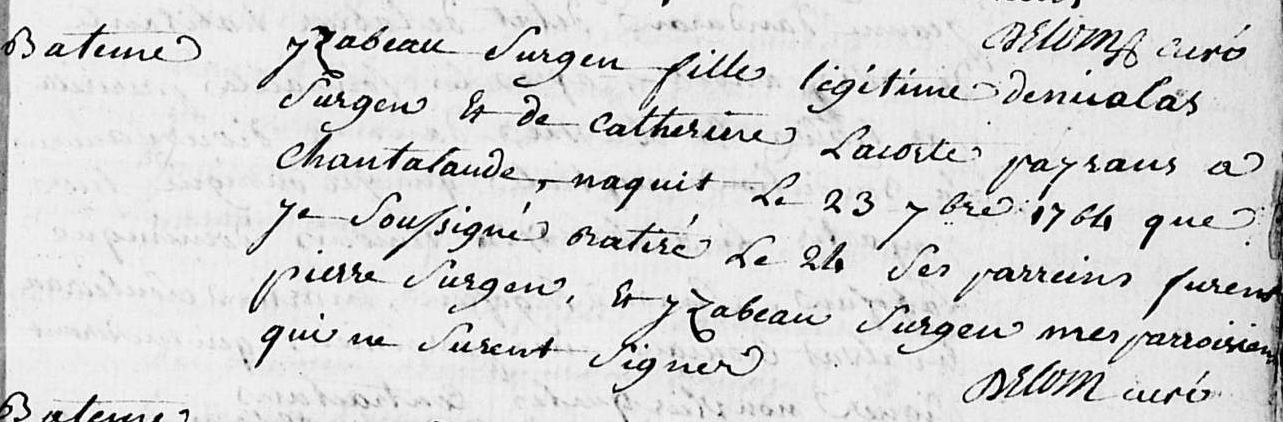 DELOM curé
Bateme yzabeau Surgen fille légitime de nicolas
Surgen et de catherine Lacoste paysans a
Chantalaude, naquit Le 23 7bre 1764 que
je Soussigné batisé Le 24 Ses parreins furent
pierre Surgen, et yzabeau Surgen mes parroisiens
qui ne Surent Signer
DELOM curé
Bateme